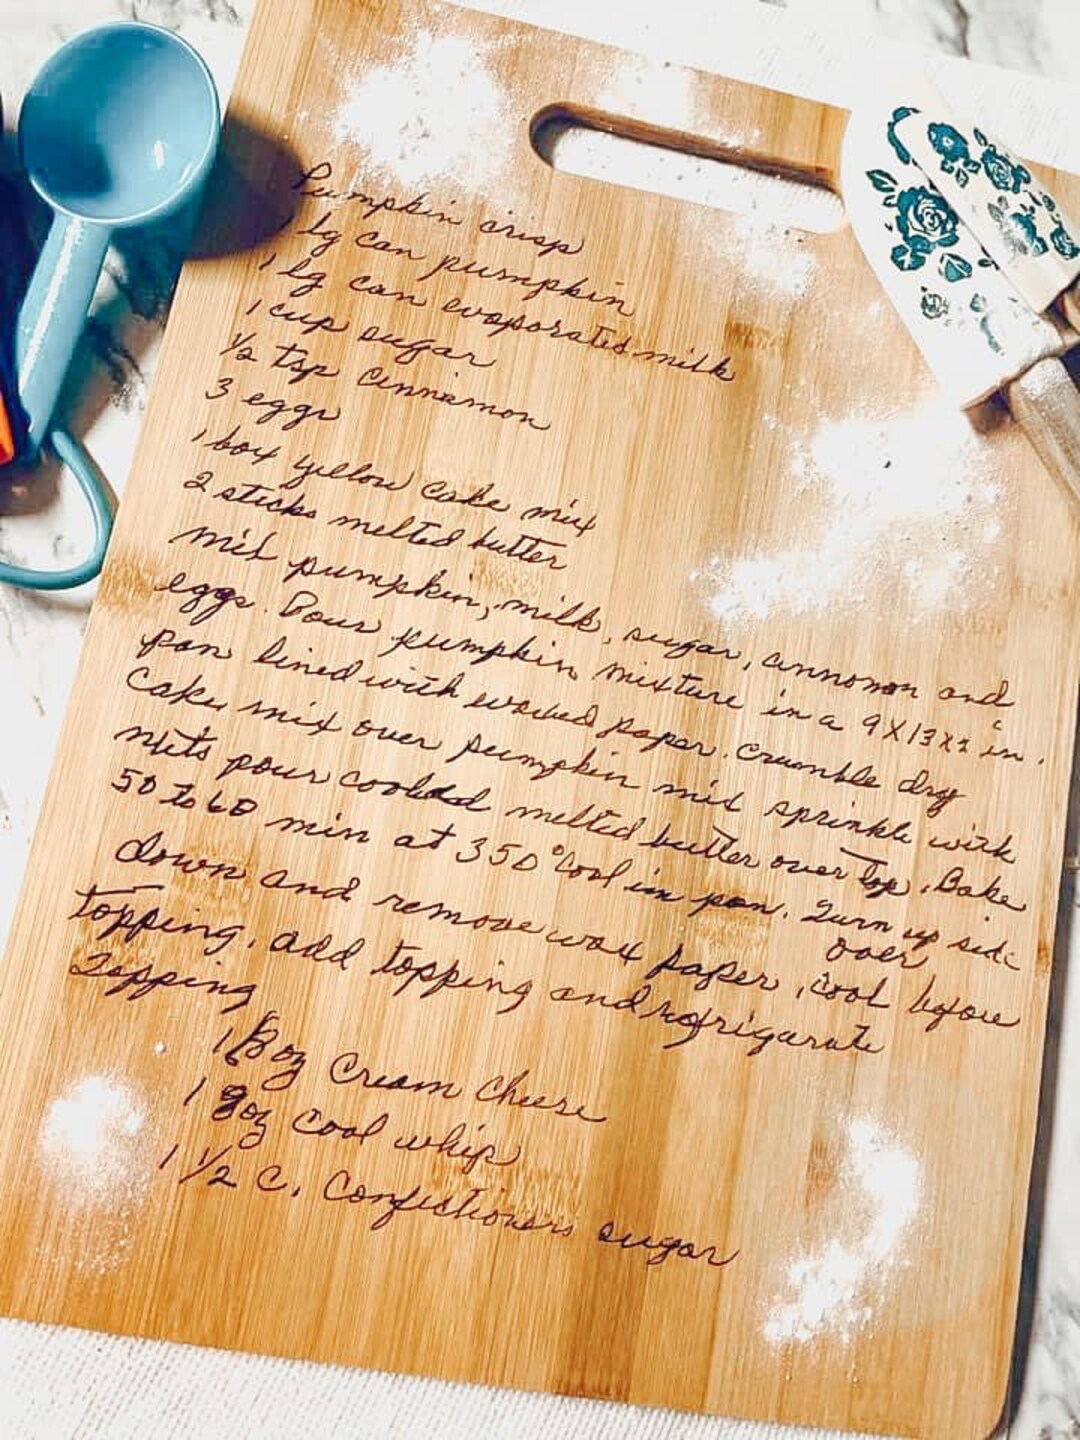 Pumpkin crisp
1 lg can pumpkin
1 lg can evaporated milk
1 cup sugar
1/2 tsp cinnamon
3 eggs
1 box yellow cake mix
2 sticks melted butter
mix pumpkin, milk, sugar, cinnomon and
eggs. Pour pumpkin mixture in a 9X13X2 in.
pan lined with waxed paper. Crumble dry
cake mix over pumpkin mix sprinkle with
nuts pour cooled melted butter over top. Bake
50 to 60 min at 350° Cool in pan. Turn up side
over
down and remove wax paper, cool before
topping, add topping and refrigarate
Topping
1 8oz Cream Cheese
1 8oz Cool whip
1 1/2 C. Confectioners sugar